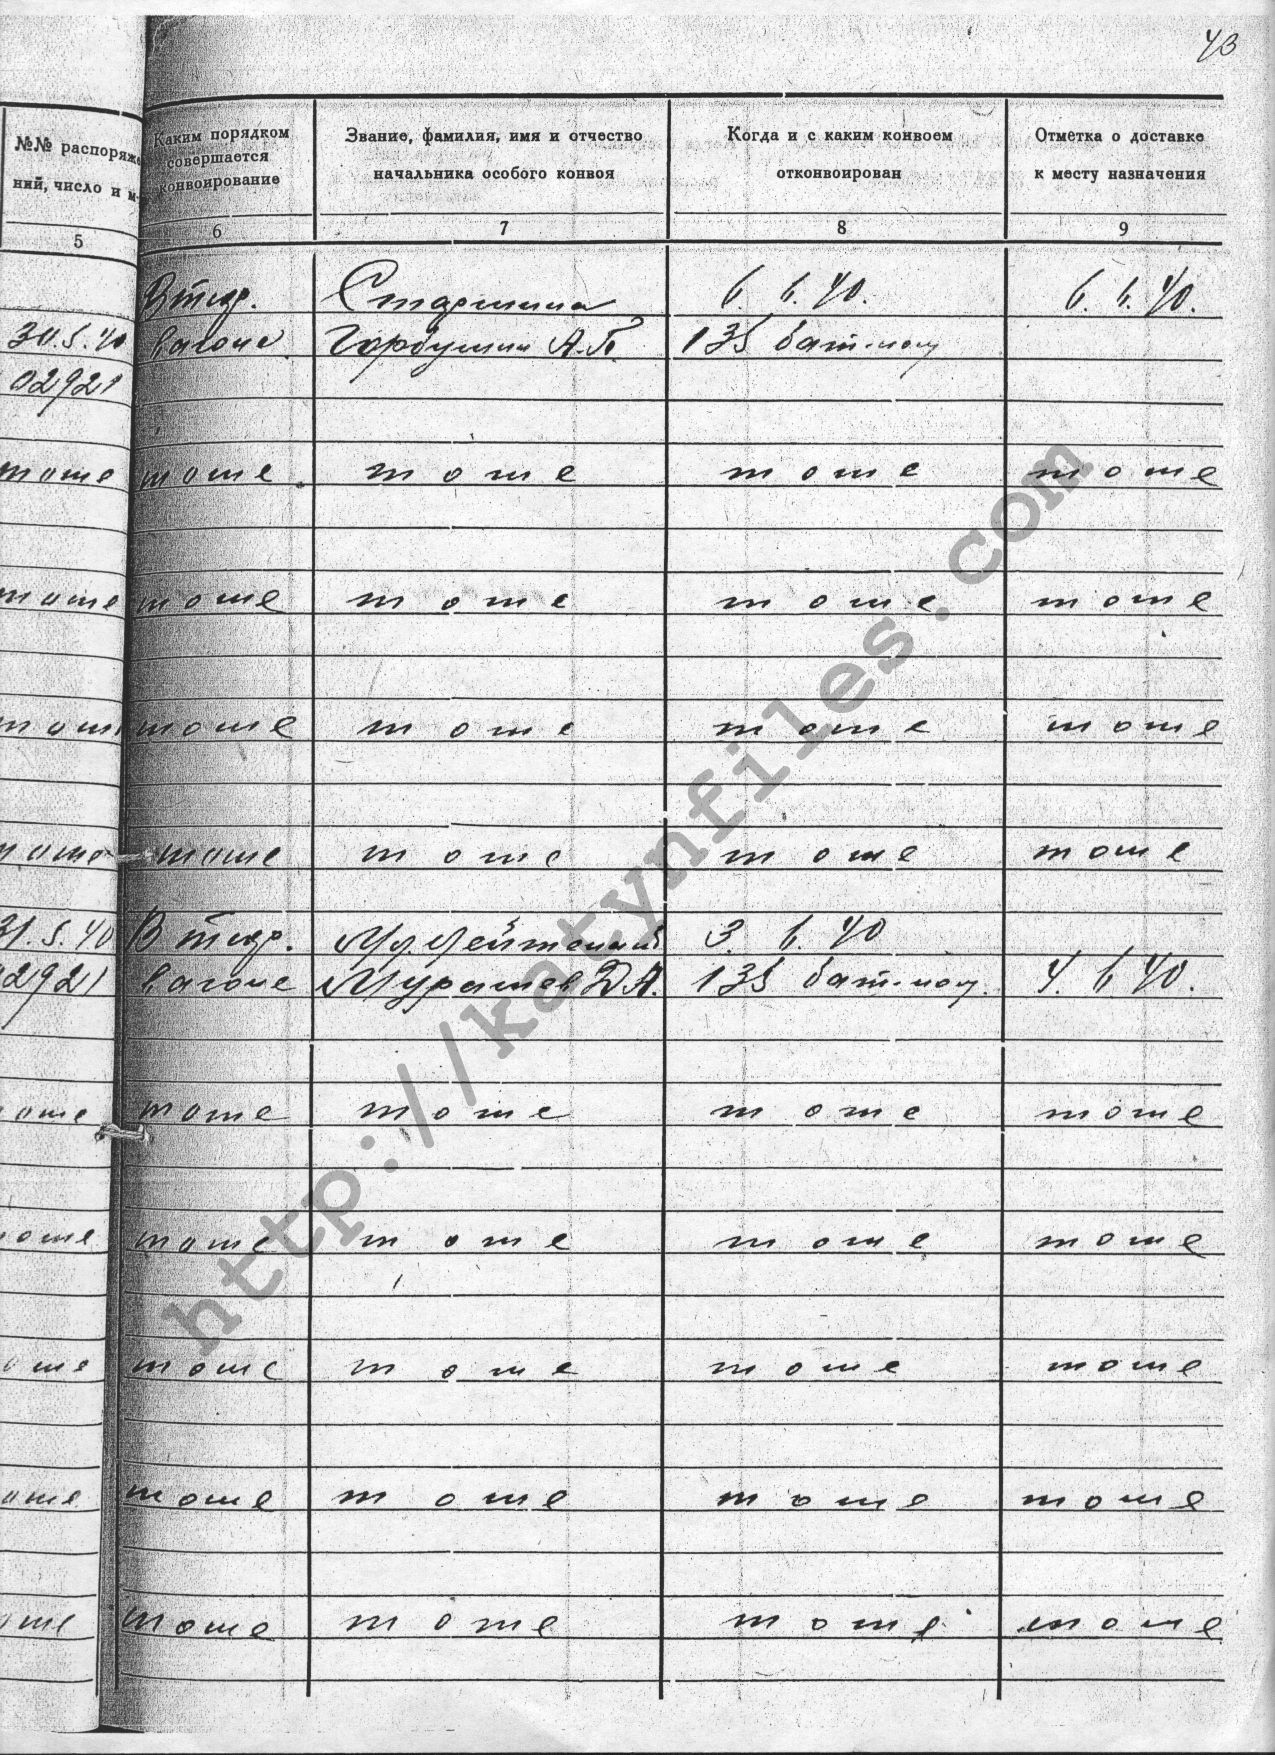 43
№№ распоряже
ний, число и м
Каким порядком
совершается
конвоирование
Звание, фамилия, имя и отчество
начальника особого конвоя
Когда и с каким конвоем
отконвоирован
Отметка о доставке
к месту назначения
5 6 7 8 9
В тюр. Старшина 6. 6. 40. 6. 6. 40.
30.5.40 вагоне Горбушин А.П. 135 бат-ном
02921
тоже тоже тоже тоже тоже
тоже тоже тоже тоже тоже
тоже тоже тоже тоже тоже
тоже тоже тоже тоже тоже
31.5.40 В тюр. Мл. Лейтенант 3. 6. 40
02921 вагоне Мурашев Д А. 135 бат-ном. 4. 6 40.
тоже тоже тоже тоже тоже
тоже тоже тоже тоже тоже
тоже тоже тоже тоже тоже
тоже тоже тоже тоже тоже
тоже тоже тоже тоже тоже
http://katynfiles.com